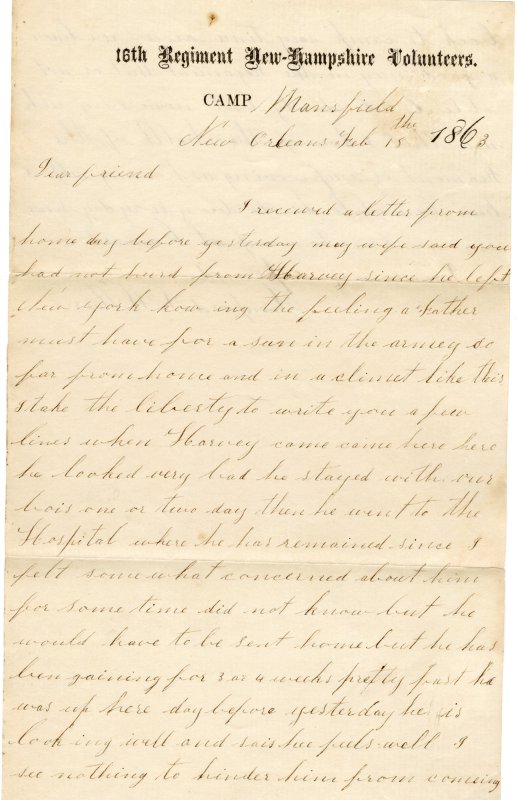 16th Regiment New-Hampshire Volunteers.
CAMP Mansfield
New Orleans Feb 15th 1863
Dear friend
I received a letter from
home day before yesterday mey wife said you
had not hurd from Harvey since he left
New York know ing the feeling a Father
must have for a sun in the armey so
far from home and in a climet like this
I take the liberty to write you a few
lines when Harvey came came here here
he looked very bad he stayed with our
bois one or two day then he went to the
Hospital where he has remained since I
felt somewhat concerned about him
for some time did not know but he
would have to be sent home but he has
ben gaining for 3 or 4 weeks pretty fast he
was up here day before yesterday he is
look ing well and sais hee feels well I
see nothing to hinder him from comeing